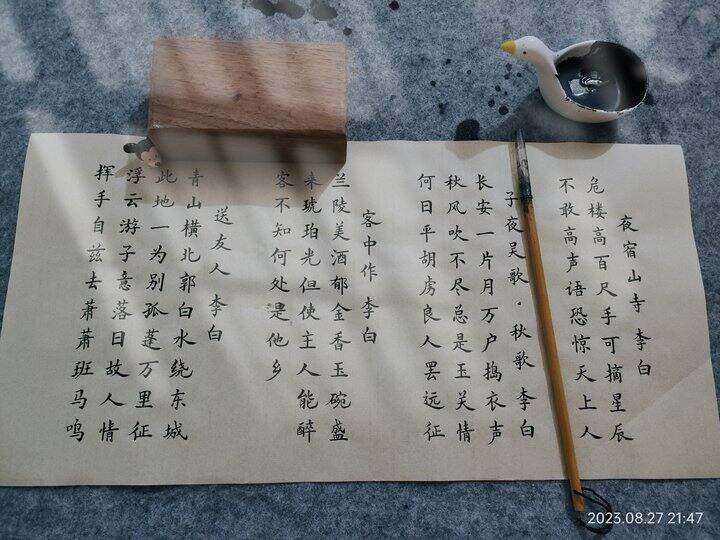 夜宿山寺 李白
危楼高百尺手可摘星辰
不敢高声语恐惊天上人
子夜吴歌·秋歌 李白
长安一片月万户捣衣声
秋风吹不尽总是玉关情
何日平胡虏良人罢远征
客中作 李白
兰陵美酒郁金香玉碗盛
来琥珀光但使主人能醉
客不知何处是他乡
送友人 李白
青山横北郭白水绕东城
此地一为别孤蓬万里征
浮云游子意落日故人情
挥手自兹去萧萧班马鸣
2023.08.27 21:47